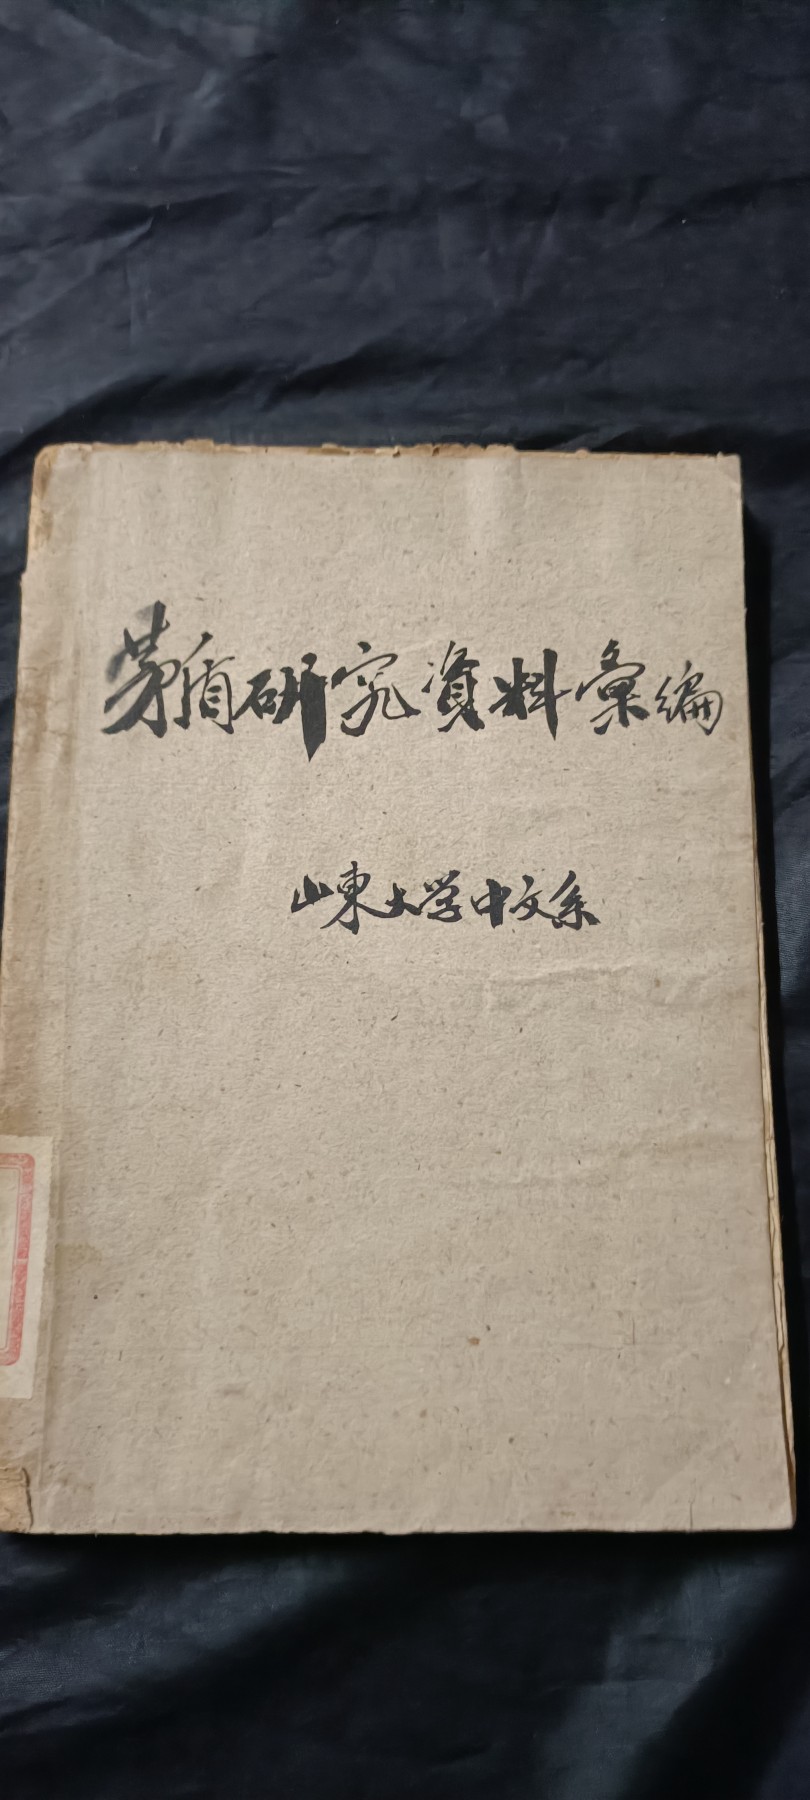 茅盾研究資料彙編
山東大学中文系